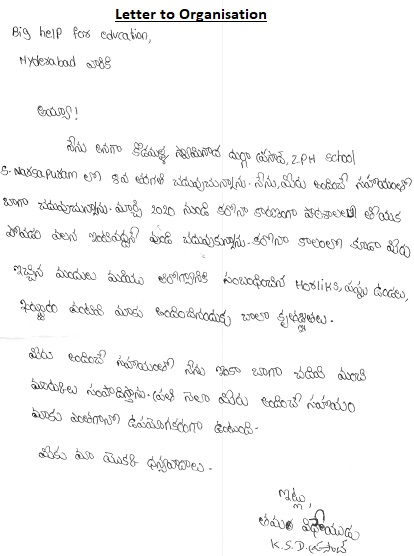 Letter to Organisation
Big help for education,
Hyderabad వారికి
అయ్యా!
నేను అనగా స్వామినాధ దుర్గా ప్రసాద్, ZPH School
S. Narsapuram లో 8వ తరగతి చదువుచున్నాను. నేను, మీరు అందించే సహాయంతో
బాగా చదువుచున్నాను. మార్చి 2020 నుండి కరోనా కారణంగా పాఠశాలలు తీయక
పోవడం వలన ఇంటివద్దనే ఉండి చదువుకున్నాను. కరోనా కాలంలో కూడా మీరు
ఇచ్చిన మందులు మరియు ఆరోగ్యానికి సంబంధించిన Horliks, నువ్వు ఉండలు,
ఖర్జూరం వంటివి మాకు అందించినందుకు చాలా కృతజ్ఞతలు.
మీరు అందించే సహాయంతో నేను ఇంకా బాగా చదివి మంచి
మార్కులు సంపాదిస్తాను. ప్రతి నెలా మీరు అందించే సహాయం
మాకు ఎంతగానో ఉపయోగకరంగా ఉంటుంది.
మీకు మా యొక్క ధన్యవాదాలు.
ఇట్లు,
తమరి విధేయుడు
K.S.D. ప్రసాద్